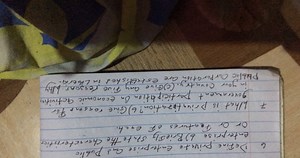 6 Define private enterprise (as public
enterprise b) Briefly state the characteristics
Or Or features of each
7 What is privatization? b) Give reasons for
government participation in economic activities
in your Country. Give any five reasons why
Public Corporation are established in Liberia.